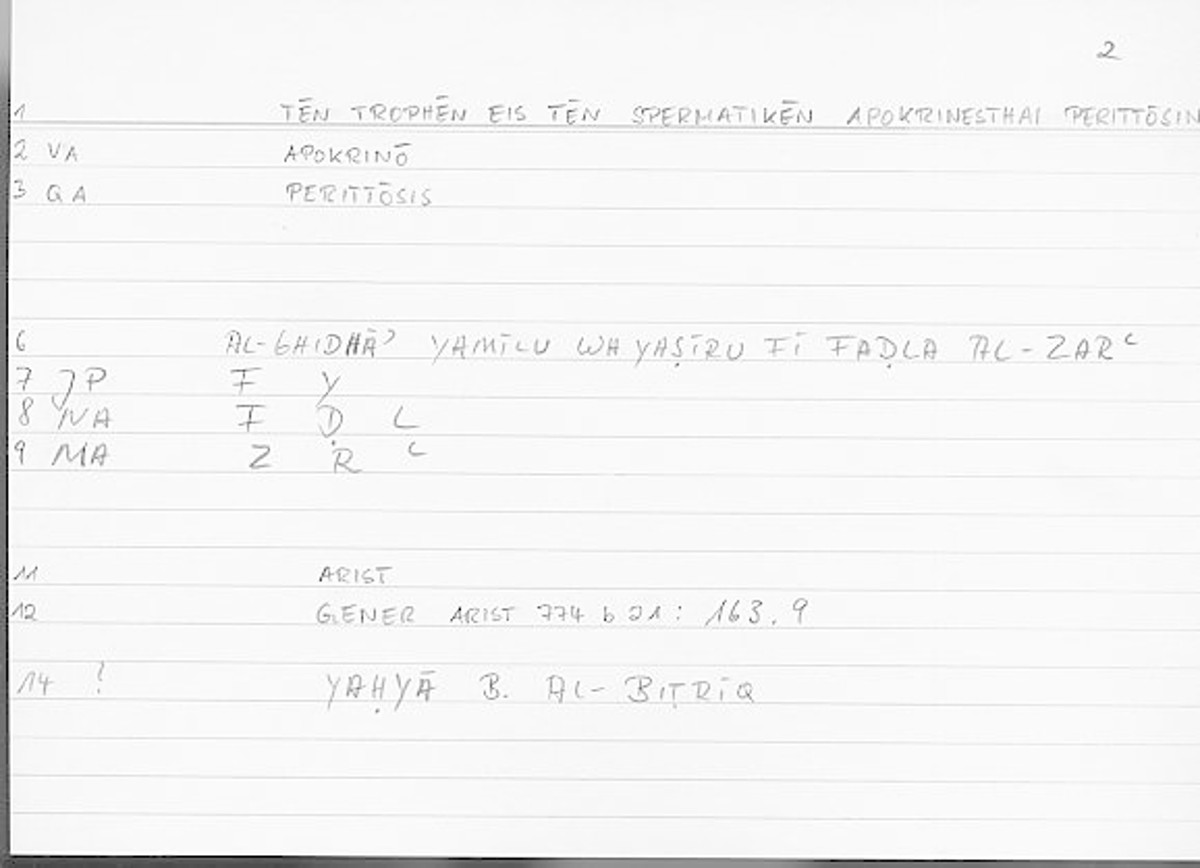 2
1 TĒN TROPHĒN EIS TĒN SPERMATIKĒN APOKRINESTHAI PERITTŌSIN
2 VA APOKRINŌ
3 QA PERITTŌSIS
6 AL-GHIDHĀʾ YAMĪLU WAYAṢĪRU FĪ FAḌLA AL-ZARʿ
7 JP F Y
8 NA F Ḍ L
9 MA Z R ʿ
11 ARIST
12 GENER ARIST 774 b 21 : 163.9
14 ! YAḤYĀ B. AL-BIṬRĪQ